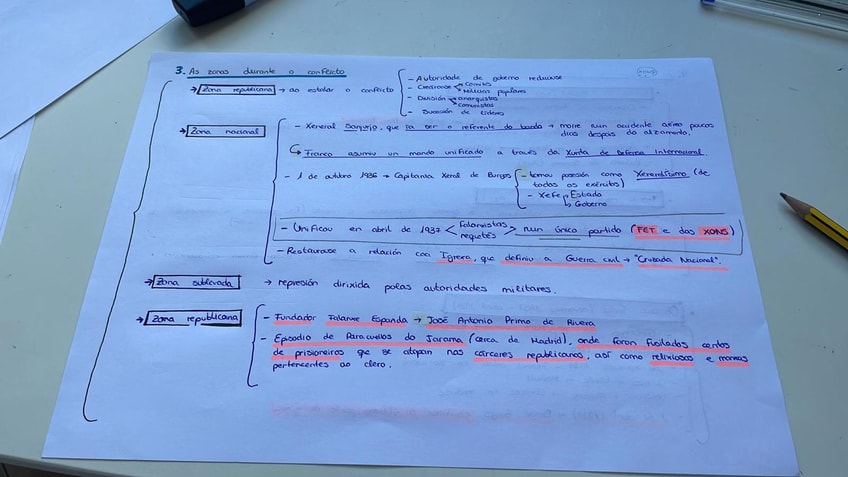 3. As zonas durante o conflicto
→ Zona republicana → ao estalar o conflicto
- Autoridade de goberno reduciuse
- Creáronse → Comités
→ Milicias populares
- División → anarquistas
→ comunistas
- Sucesión de líderes
→ Zona nacional
- Xeneral Sanjurjo, que ía ser o referente do bando → morre nun accidente aéreo poucos
días despois do alzamento.
→ Franco asumiu un mando unificado a través da Xunta de Defensa Internacional.
- 1 de outubro 1936 → Capitanía Xeral de Burgos
- tomou posesión como Xeneralísimo (de
todos os exércitos)
- Xefe → Estado
→ Goberno
- Unificou en abril de 1937 < Falanxistas
requetés > nun único partido (FET e das XONS)
- Restaurouse a relación coa Igrexa, que definiu a Guerra civil → "Cruzada Nacional".
→ Zona sublevada → represión dirixida polas autoridades militares.
→ Zona republicana
- Fundador Falanxe Española → José Antonio Primo de Rivera
- Episodio de Paracuellos do Jarama (cerca de Madrid), onde foron fusilados centos
de prisioneiros que se atopan nas cárceres republicanas, así como relixiosos e monxas
pertencentes ao clero.